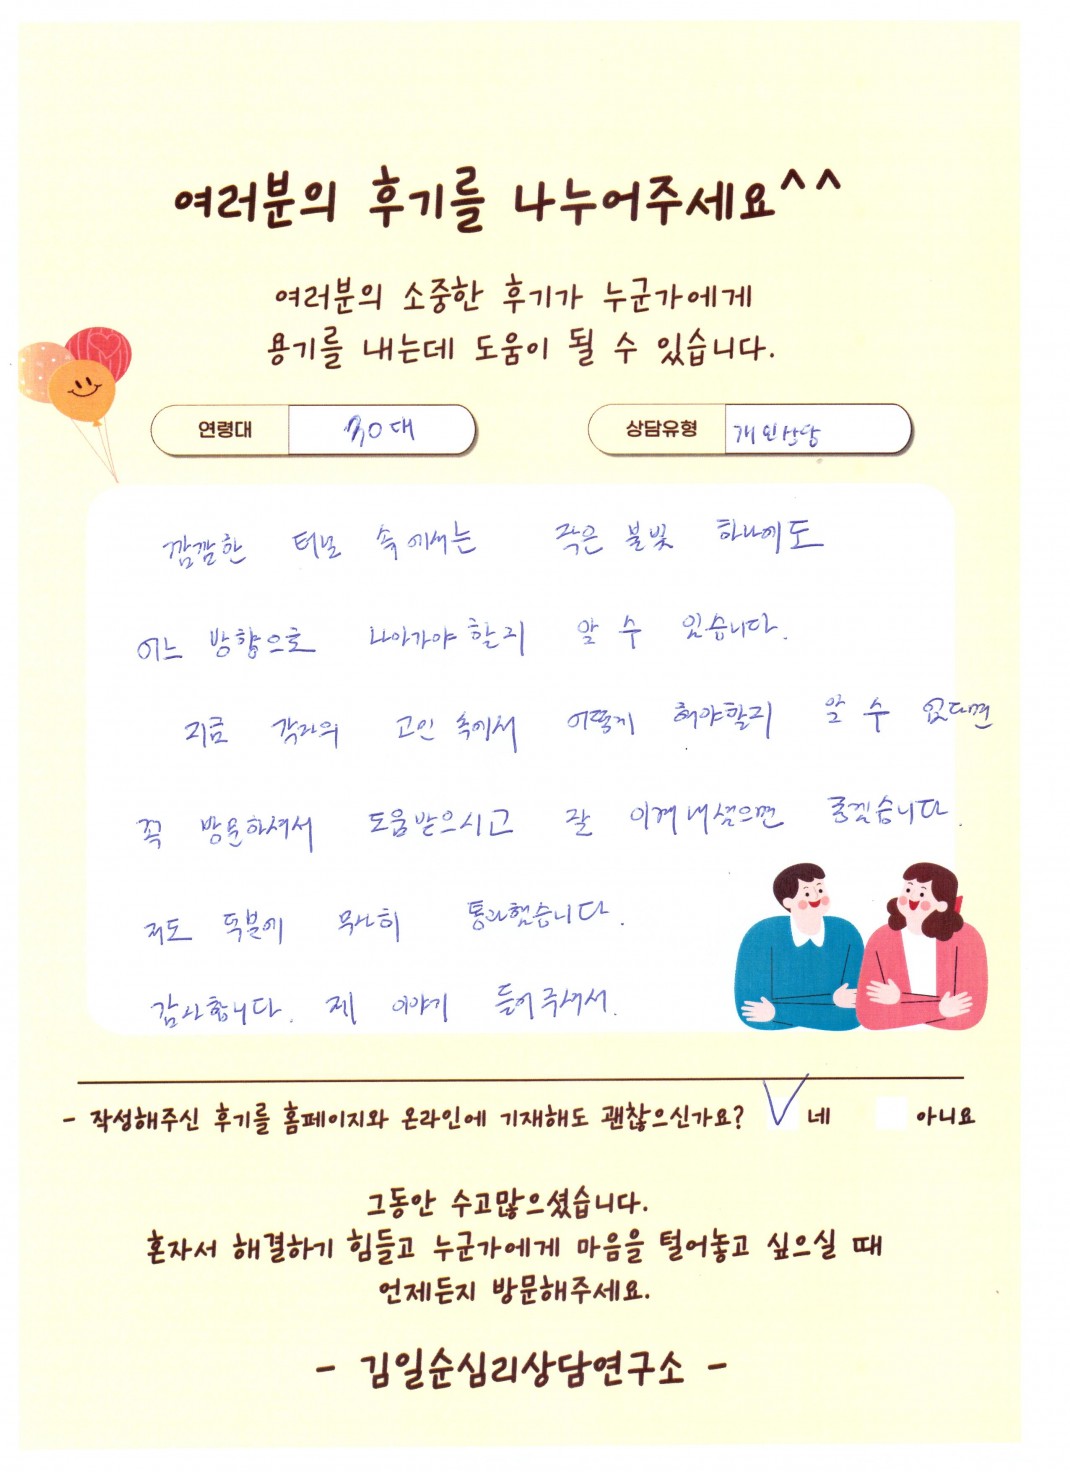 여러분의 후기를 나누어주세요^^
여러분의 소중한 후기가 누군가에게
용기를 내는데 도움이 될 수 있습니다.
연령대 30대 상담유형 개인상담
깜깜한 터널 속에서는 작은 불빛 하나에도
어느 방향으로 나아가야 할지 알 수 있습니다.
지금 각자의 고민 속에서 어떻게 해야할지 알 수 없다면
꼭 방문하셔서 도움받으시고 잘 이겨내셨으면 좋겠습니다.
저도 덕분에 무사히 통과했습니다.
감사합니다. 제 이야기 들어주셔서.
- 작성해주신 후기를 홈페이지와 온라인에 기재해도 괜찮으신가요? V 네 아니요
그동안 수고많으셨습니다.
혼자서 해결하기 힘들고 누군가에게 마음을 털어놓고 싶으실 때
언제든지 방문해주세요.
- 김일순심리상담연구소 -